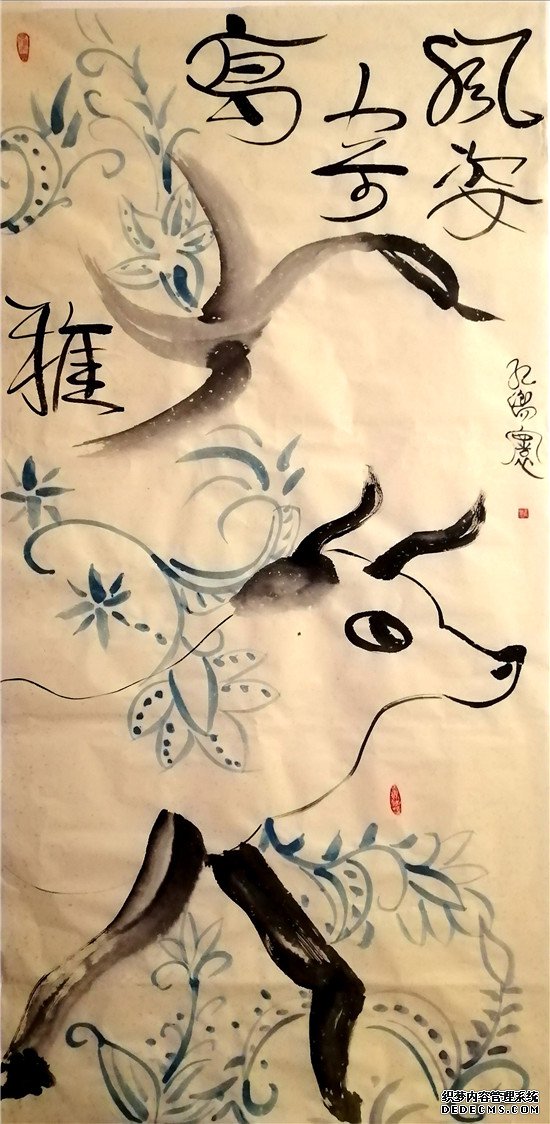 風姿
奇
高
雅
织梦内容管理系统
DEDECMS.COM